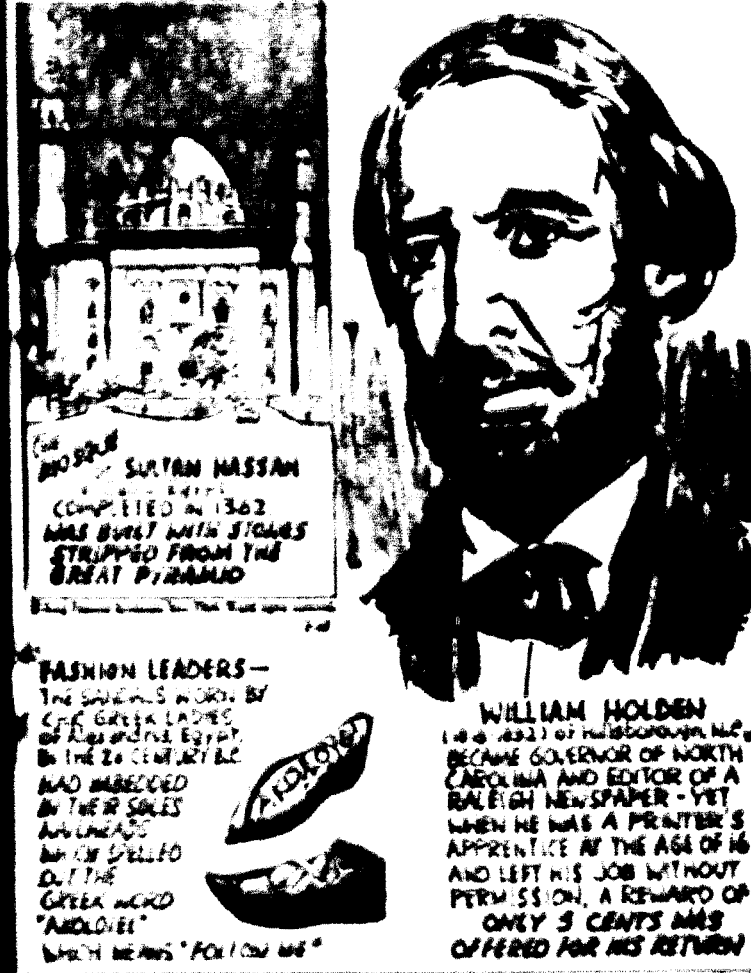 THE
MOSQUE
OF SULTAN HASSAN
COMPLETED IN 1362
WAS BUILT WITH STONES
STRIPPED FROM THE
GREAT PYRAMID
FASHION LEADERS—
THE SANDALS WORN BY
CHIC GREEK LADIES
of Alexandria, Egypt,
IN THE 2d CENTURY B.C.
HAD IMBEDDED
IN THEIR SOLES
NAILHEADS
WHICH SPELLED
OUT THE
GREEK WORD
WHICH MEANS "FOLLOW ME"
WILLIAM HOLDEN
of Hillsborough, N.C.,
BECAME GOVERNOR OF NORTH
CAROLINA AND EDITOR OF A
RALEIGH NEWSPAPER - YET
WHEN HE WAS A PRINTER'S
APPRENTICE AT THE AGE OF 16
AND LEFT HIS JOB WITHOUT
PERMISSION, A REWARD OF
ONLY 5 CENTS WAS
OFFERED FOR HIS RETURN